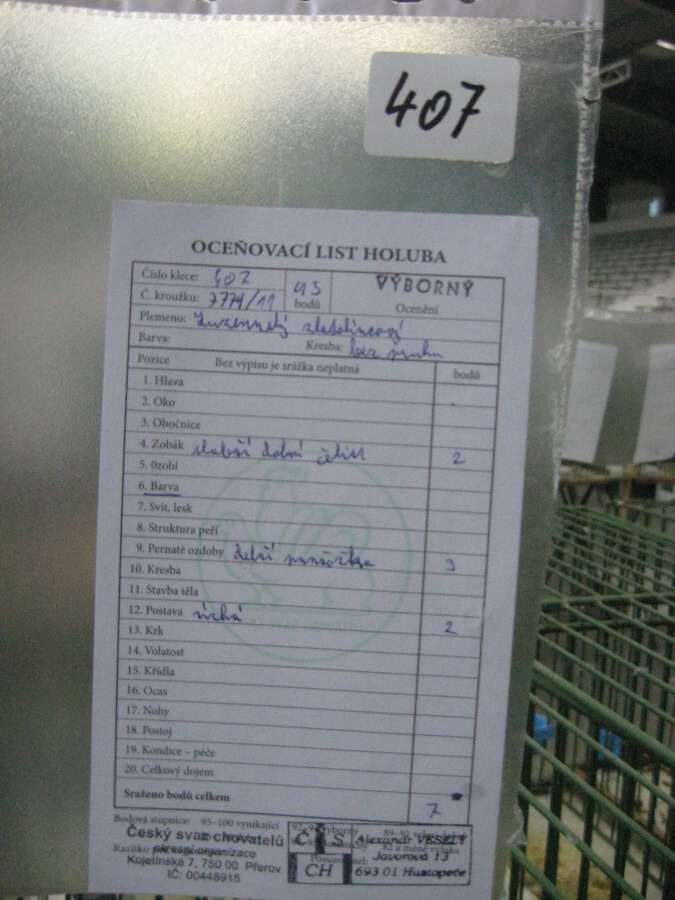 407
OCEŇOVACÍ LIST HOLUBA
Číslo klece: 407
Č. kroužku: 7774/11
93 bodů
VÝBORNÝ
Ocenění
Plemeno: Luzernský
Barva:
Kresba: bez pruhu
Pozice Bez výpisu je srážka neplatná bodů
1. Hlava
2. Oko
3. Obočnice
4. Zobák slabší dolní čelist 2
5. Ozobí
6. Barva
7. Svit, lesk
8. Struktura peří
9. Pernaté ozdoby delší 3
10. Kresba
11. Stavba těla
12. Postava úzká 2
13. Krk
14. Volatost
15. Křídla
16. Ocas
17. Nohy
18. Postoj
19. Kondice – péče
20. Celkový dojem
Sraženo bodů celkem 7
Bodová stupnice: 95-100 vynikající
Český svaz chovatelů
okresní organizace
Kojetínská 7, 750 00 Přerov
IČ: 00448915
Č S
CH
Posuzovatel:
Alexandr VESELÝ
Javorová 13
693 01 Hustopeče